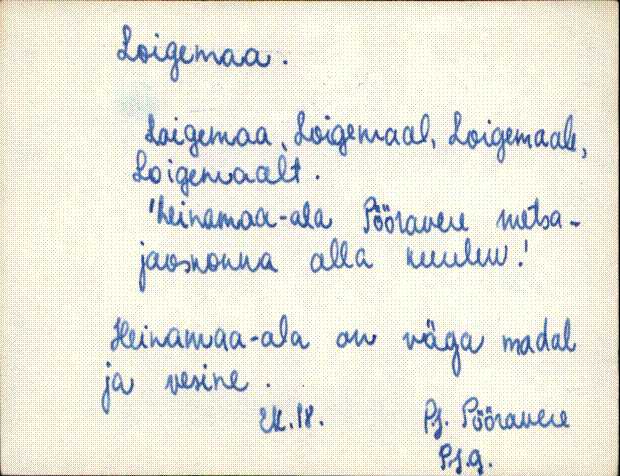 Loigemaa.
Loigemaa, Loigemaal, Loigemaale,
Loigemaalt.
'heinamaa-ala Pööravere metsa-
jaoskonna alla kuuluv.'
Heinamaa-ala on väga madal
ja vesine.
EK.18. Pj. Pööravere